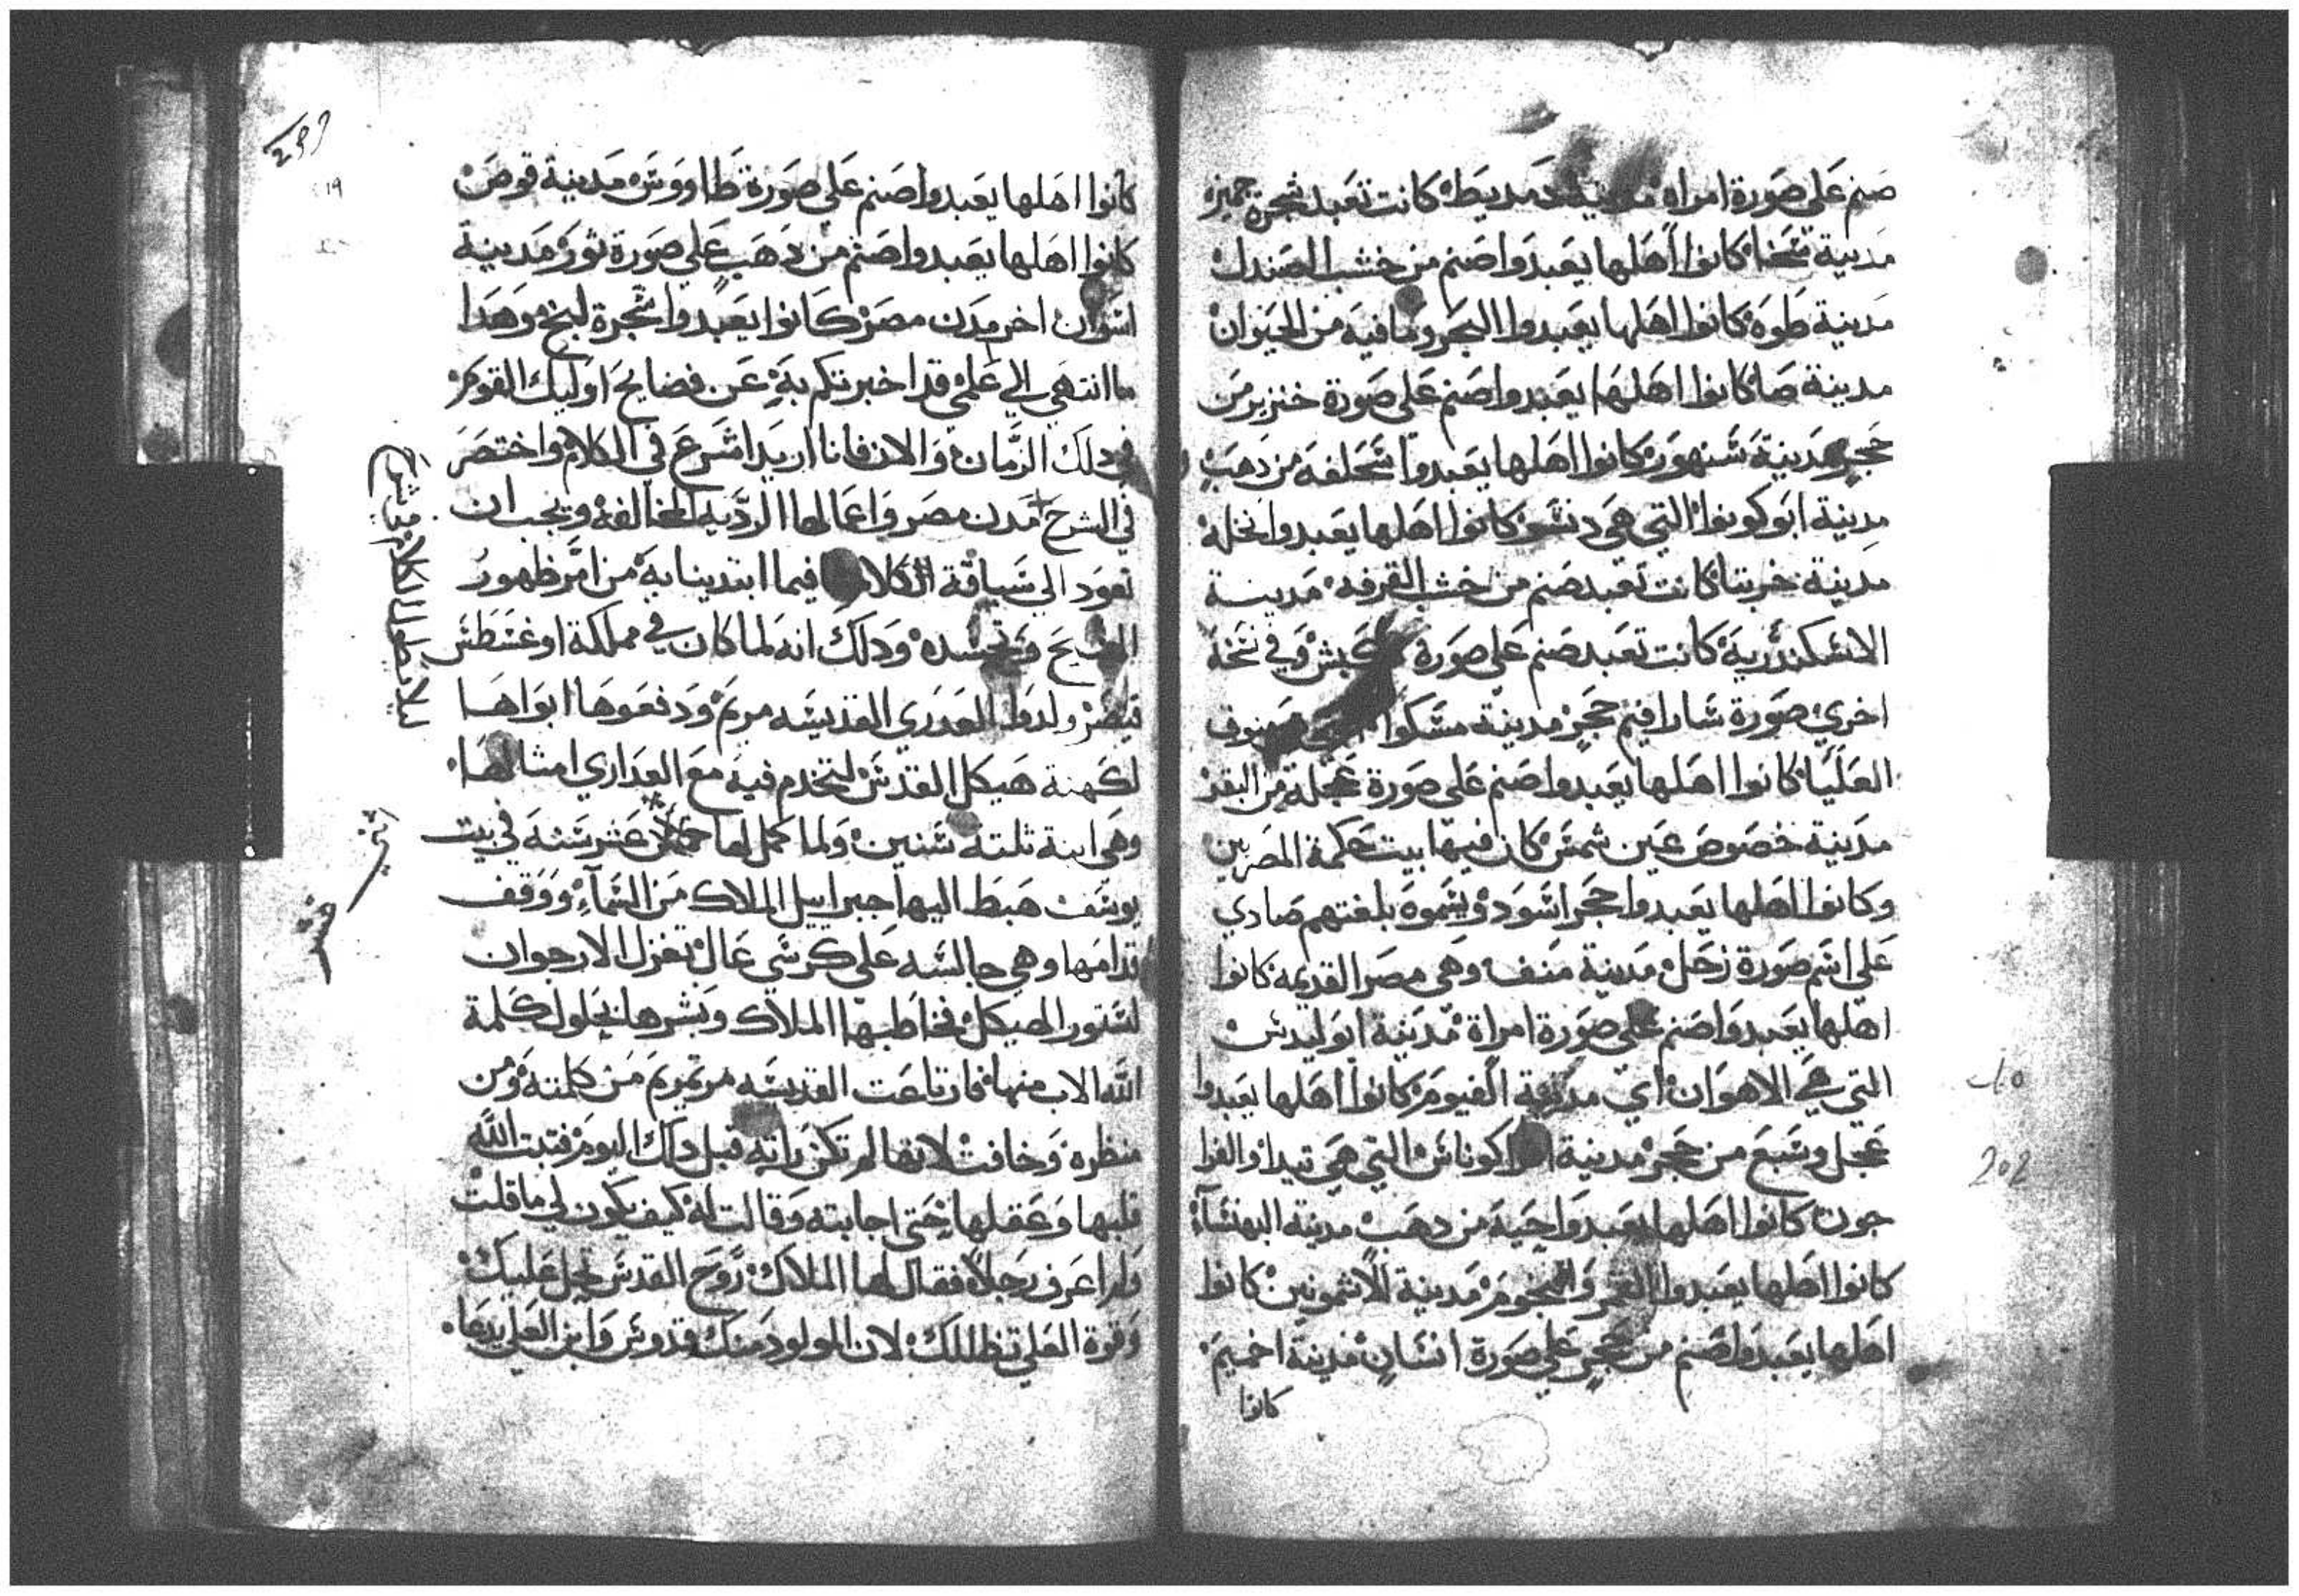 صنم علي صورة امراه مدينة دمديط كانت تعبد شجرة جميزه
مدينة سخا كانوا اهلها يعبدوا صنم من خشب الصندل
مدينة طوه كانوا اهلها يعبدوا البحر وما فيه من الحيوان
مدينة صا كانوا اهلها يعبدوا صنم علي صورة خنزير من
حجر مدينة سنهور كانوا اهلها يعبدوا سحلفه من دهب
مدينة ابو كونوا التي هي كانوا اهلها يعبدوا نخله
مدينة خربتا كانت تعبد صنم من خشب القرفه مدينة
الاسكندرية كانت تعبد صنم علي صورة كبش وفي نسخة
اخري صورة حجر مدينة
العليا كانوا اهلها يعبدوا صنم علي صورة عجلة من البقر
مدينة خصوص عين شمس كان فيها بيت حكمة المصريين
وكانوا اهلها يعبدوا حجر اسود ويسموه بلغتهم صادي
علي اسم صورة زحل مدينة منف وهي مصر القديمه كانوا
اهلها يعبدوا صنم علي صورة امراة مدينة ابوليدس
التي هي الاهوان اي مدينة الفيوم كانوا اهلها يعبدوا
عجل وسبع من حجر مدينة التي هي تيدا والفرا
جون كانوا اهلها يعبدوا حية من دهب مدينة البهنساء
كانوا اهلها يعبدوا القمر والنجوم مدينة الاشمونين كانوا
اهلها يعبدوا صنم من حجر علي صورة انسان مدينة اخميم
كانوا
كانوا اهلها يعبدوا صنم علي صورة طاووس مدينة قوص
كانوا اهلها يعبدوا صنم من دهب علي صورة ثور مدينة
اسوان اخر مدن مصر كانوا يعبدوا شجرة لبخ وهدا
ما انتهي الي علمي قد اخبرتكم به عن فضايح اوليك القوم
في دلك الزمان والان فانا اريد اشرع في الكلام واختصر
في الشرح مدن مصر واعمالها الرديه المخالفه ويجب ان
نعود الي سياقة الكلام فيما ابتدينا به من امر ظهور
المسيح وتجسده ودلك انه لما كان في مملكة اوغسطس
قيصر ولدوا العدري القديسه مريم ودفعوها ابواها
لكهنة هيكل القدس لتخدم فيه مع العداري امثالها
وهي ابنة ثلتة سنين ولما كمل لها عشر سنه في بيت
يوسف هبط اليها جبراييل الملاك من السماء ووقف
قدامها وهي جالسه علي كرسي عال تغزل الارجوان
لستور الهيكل فخاطبها الملاك وبشرها بحلول كلمة
الله الاب منها فارتاعت القديسه مرتمريم من كلمته ومن
منظره وخافت لانها لم تكن راته قبل دلك اليوم فتبت الله
قلبها وعقلها حتي اجابته وقالت له كيف يكون لي ما قلت
ولم اعرف رجلا فقال لها الملاك روح القدس تحل عليك
وقوة العلي تظللك لان المولود منك قدوس وابن العلي يدعا